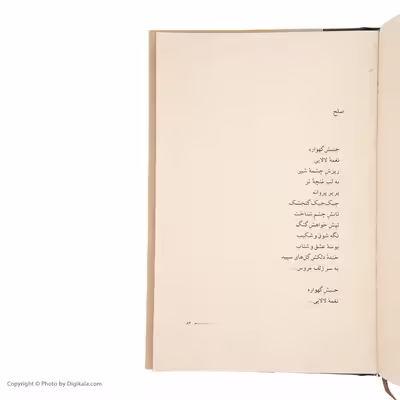 صلح
جنبش گهواره
نغمهٔ لالایی
ریزش چشمهٔ شیر
به لب غنچهٔ تر
پر پر پروانه
جیک‌جیک گنجشک
تابش چشم شناخت
تپش خواهش گنگ
نگه شوق و شکیب
بوسهٔ عشق و شتاب
خندهٔ دلکش گل‌های سپید
به سر زلف عروس...
جنبش گهواره
نغمهٔ لالایی...
۸۳
Copyright © Photo by Digikala.com